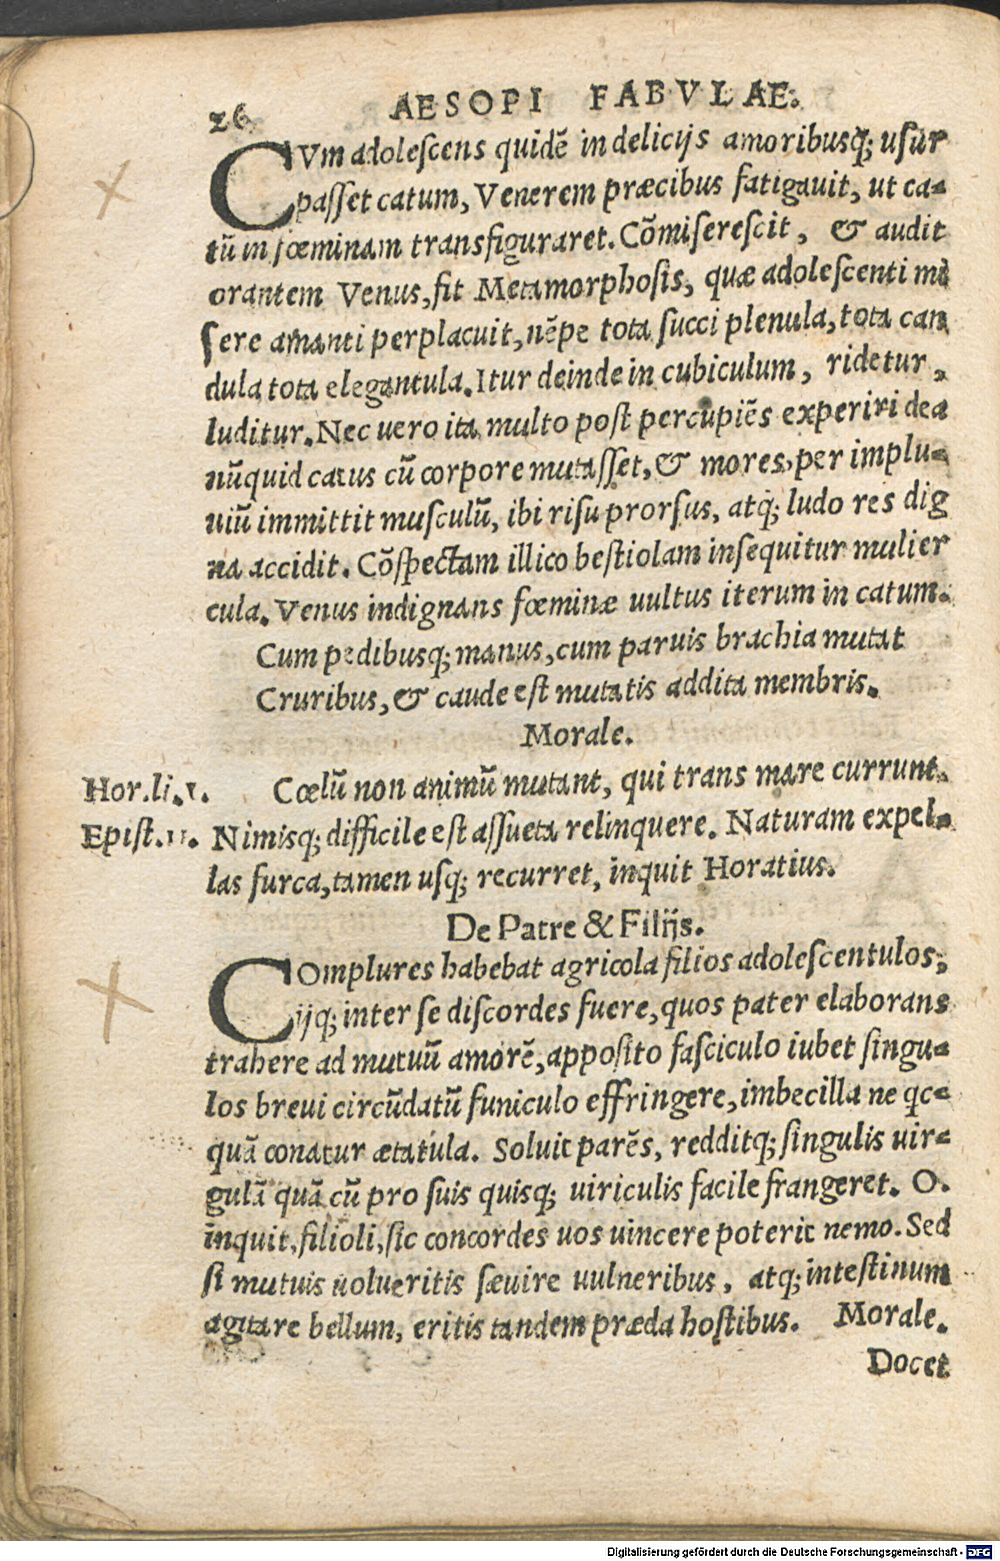 26 AESOPI FABVLAE.
CVm adolescens quidē in delicijs amoribusq; usur
passet catum, Venerem præcibus fatigauit, ut ca-
tū in fœminam transfiguraret. Cōmiserescit, & audit
orantem Venus, fit Metamorphosis, quæ adolescenti mi
sere amanti perplacuit, nēpe tota succi plenula, tota can
dula tota elegantula. Itur deinde in cubiculum, ridetur,
luditur. Nec uero ita multo post percupiēs experiri dea
nūquid catus cū corpore mutasset, & mores, per implu-
uiū immittit musculū, ibi risu prorsus, atq; ludo res dig
na accidit. Cōspectam illico bestiolam insequitur mulier
cula. Venus indignans fœminæ uultus iterum in catum.
Cum pedibusq; manus, cum paruis brachia mutat
Cruribus, & caude est mutatis addita membris.
Morale.
Hor.li.1. Cœlū non animū mutant, qui trans mare currunt.
Epist.11. Nimisq; difficile est assueta relinquere. Naturam expel-
las furca, tamen usq; recurret, inquit Horatius.
De Patre & Filijs.
COmplures habebat agricola filios adolescentulos;
ijq; inter se discordes fuere, quos pater elaborans
trahere ad mutuū amorē, apposito fasciculo iubet singu-
los breui circūdatū funiculo effringere, imbecilla ne qc-
quā conatur ætatula. Soluit parēs, redditq; singulis uir-
gulā quā cū pro suis quisq; uiriculis facile frangeret. O.
inquit, filioli, sic concordes uos uincere poterit nemo. Sed
si mutuis uolueritis sæuire uulneribus, atq; intestinum
agitare bellum, eritis tandem præda hostibus. Morale.
Docet
Digitalisierung gefördert durch die Deutsche Forschungsgemeinschaft - DFG